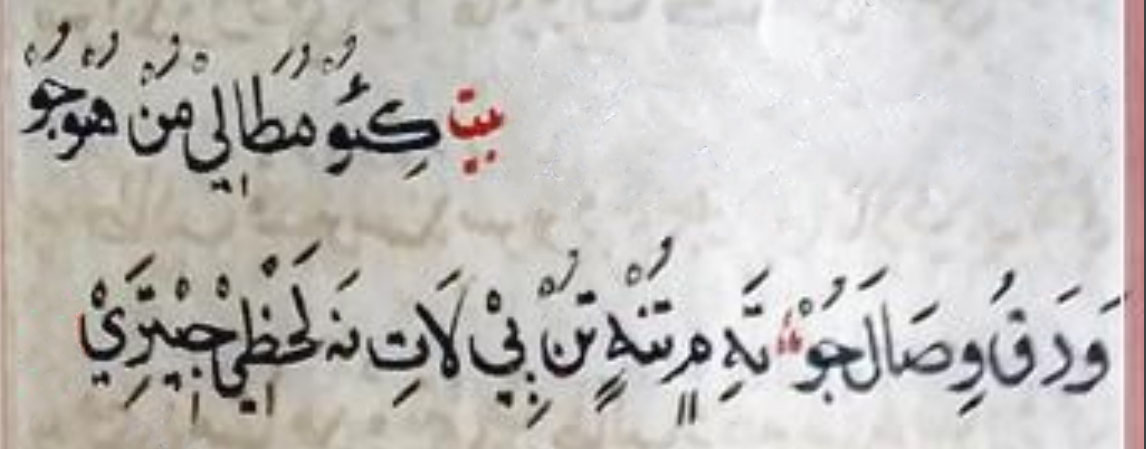 بيت كِئُو مُطَالِي مُنْ هُوجُو
وَرَقُ وِصَالَ جُوْ تَهِ مِ تُنْهِ تُنْ بِيْ لَاتِ نَہ لَحْظِيْ جِيْتَرِيْ